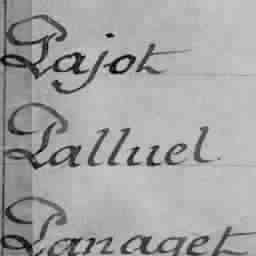 Pajot
Palluel
Panaget